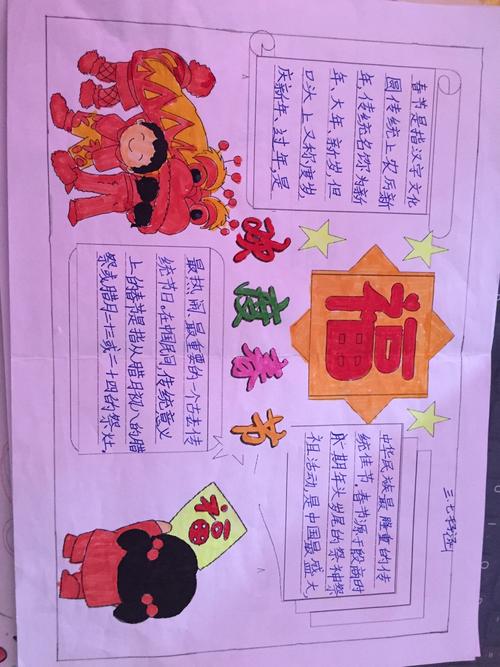 春节是指汉字文化
圆传统上农历新
年,传统名称为新
年、大年、新岁,但
口头上又称度岁、
庆新年、过年,是
福
中华民族最隆重的传
统佳节,春节源于殷商的
时期年头岁尾的祭神祭
祖活动是中国最盛大,
欢度春节
最热闹、最重要的一个古老传
统节日。在中国民间,传统意义
上的春节是指从腊月初八的腊
祭或腊月二十三或二十四的祭灶,
福